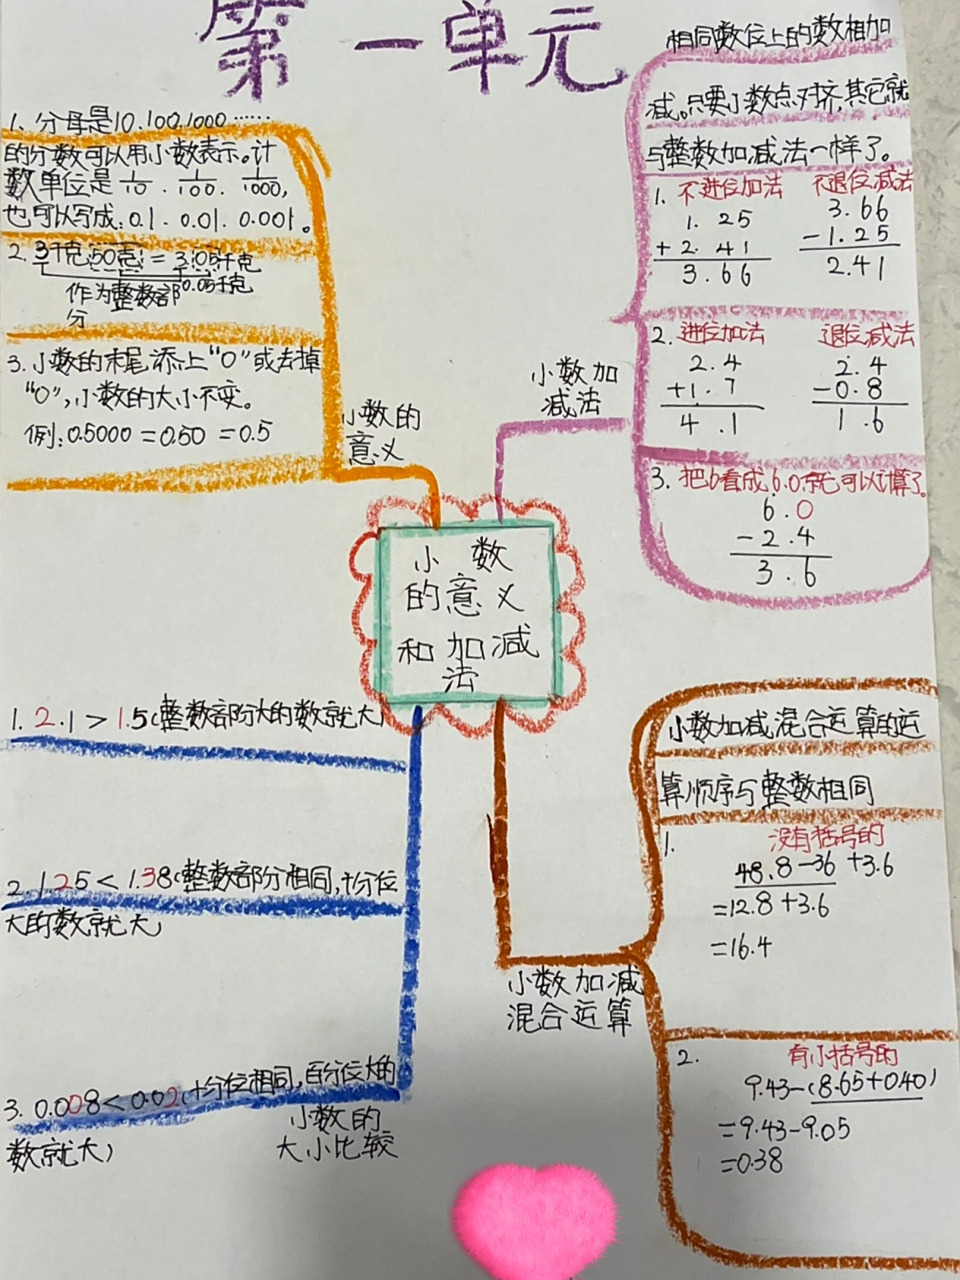 第一单元
1. 分母是10.100.1000······
的分数可以用小数表示。计
数单位是1/10.1/100.1/1000,
也可以写成:0.1.0.01.0.001。
2. 3千克50克=3.05千克
0.05千克
作为整数部
分
3. 小数的末尾添上“0”或去掉
“0”,小数的大小不变。
例:0.5000=0.50=0.5
小数的
意义
相同数位上的数相加
减。只要小数点对齐,其它就
与整数加减法一样了。
1. 不进位加法 不退位减法
1.25 3.66
+2.41 -1.25
3.66 2.41
2. 进位加法 退位减法
2.4 2.4
+1.7 -0.8
4.1 1.6
3. 把6看成6.0就可以计算了。
6.0
-2.4
3.6
小数加
减法
小数
的意义
和加减
法
1. 2.1>1.5(整数部分大的数就大)
2. 1.25<1.38(整数部分相同,十分位
大的数就大)
3. 0.008<0.02(十分位相同,百分位大的
数就大)
小数的
大小比较
小数加减混合运算的运
算顺序与整数相同
1. 没有括号的
48.8-36+3.6
=12.8+3.6
=16.4
小数加减
混合运算
2. 有小括号的
9.43-(8.65+0.40)
=9.43-9.05
=0.38